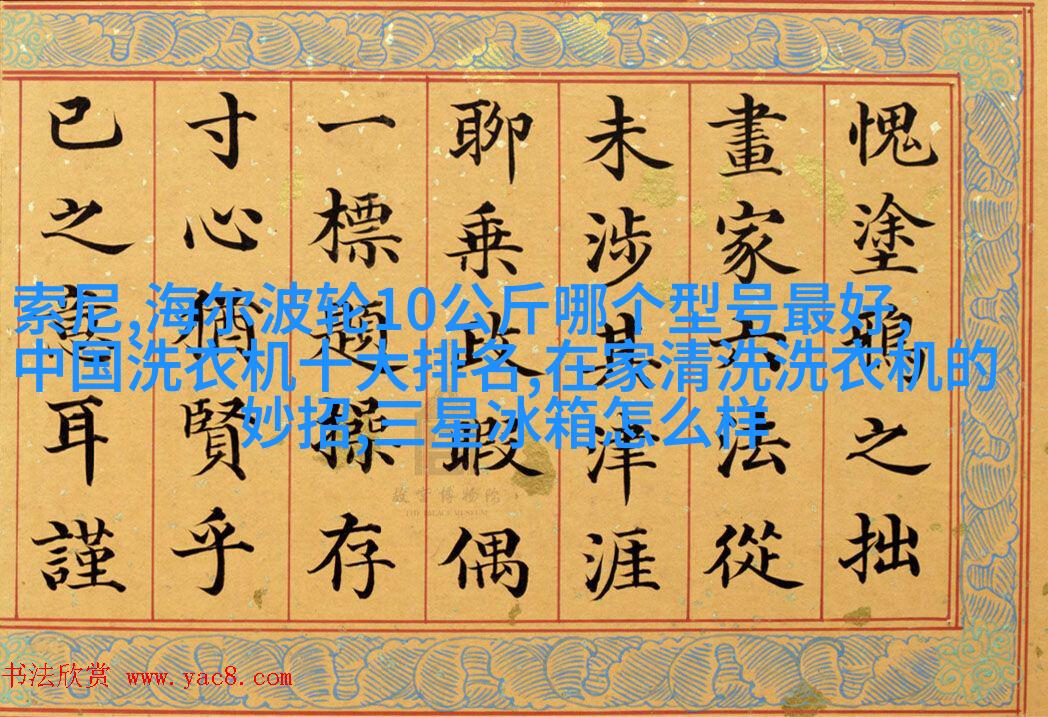 愧塗鴉之拙
畫家六法從
未涉其津涯
聊乘政暇偶
一標題操存
寸心猶賢乎
已之意耳謹
索尼,海尔波轮10公斤哪个型号最好,
中国洗衣机十大排名,在家清洗洗衣机的
妙招,三星冰箱怎么样
故宫博物院
THE PALACE MUSEUM
书法欣赏 www.yac8.com